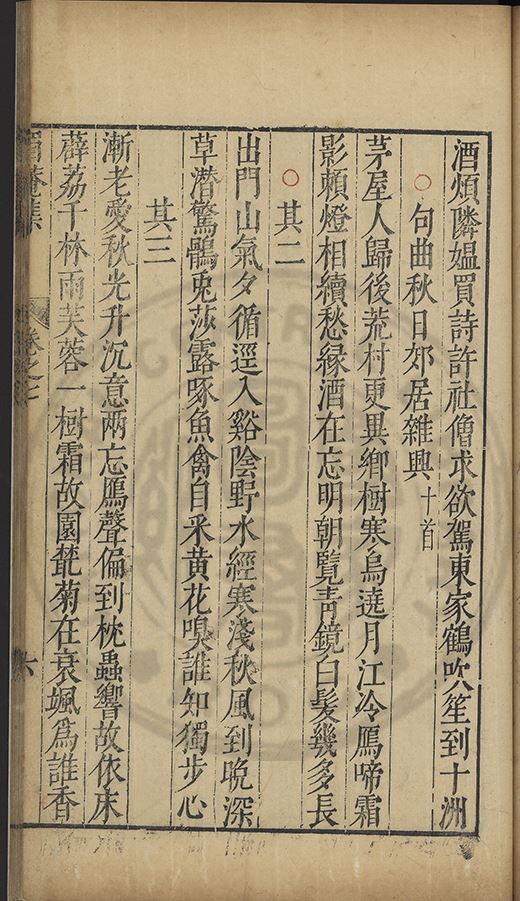 酒煩隣媼買詩許社僧求欲駕東家鶴吹笙到十洲
句曲秋日郊居雜興十首
茅屋人歸後荒村更異鄉樹寒烏遶月江冷鴈啼霜
影頼燈相續愁緣酒在忘明朝覽青鏡白髮幾多長
其二
出門山氣夕循逕入谿陰野水經寒淺秋風到晚深
草潛驚鶻兎莎露啄魚禽自釆黄花嗅誰知獨步心
其三
漸老愛秋光升沉意兩忘鴈聲偏到枕蟲響故依床
薜荔千林雨芙蓉一樹霜故園叢菊在衰颯爲誰香
卷之七
六